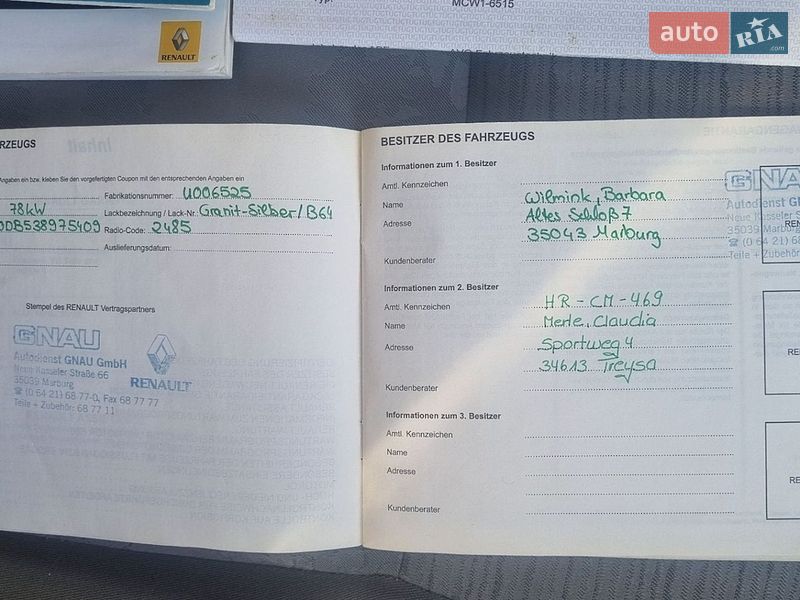 Typ:
MCW1-6515
auto RIA.com
RENAULT
RZEUGS
Angaben ein bzw. kleben Sie den vorgefertigten Coupon mit den entsprechenden Angaben ein
Fabrikationsnummer: U006525
78kW
Lackbezeichnung / Lack-Nr. Granit-Silber/B64
Radio-Code: 2485
Auslieferungsdatum:
Stempel des RENAULT Vertragspartners
GNAU
Autodienst GNAU GmbH
Neue Kasseler Straße 66
35039 Marburg
☎ (0 64 21) 68 77-0, Fax 68 77 77
Teile + Zubehör: 68 77 11
RENAULT
BESITZER DES FAHRZEUGS
Informationen zum 1. Besitzer
Amtl. Kennzeichen
Name Wilmink, Barbara
Adresse Altes Schloß 7
35043 Marburg
Kundenberater
Informationen zum 2. Besitzer
Amtl. Kennzeichen HR-CM-469
Name Merle, Claudia
Adresse Sportweg 4
34613 Treysa
Kundenberater
Informationen zum 3. Besitzer
Amtl. Kennzeichen
Name
Adresse
Kundenberater
GNA
Autodienst GN
Neue Kasseler S
35039 Marbur
☎ (0 64 21) 68
Teile + Zubehör:
REN
RE
RE